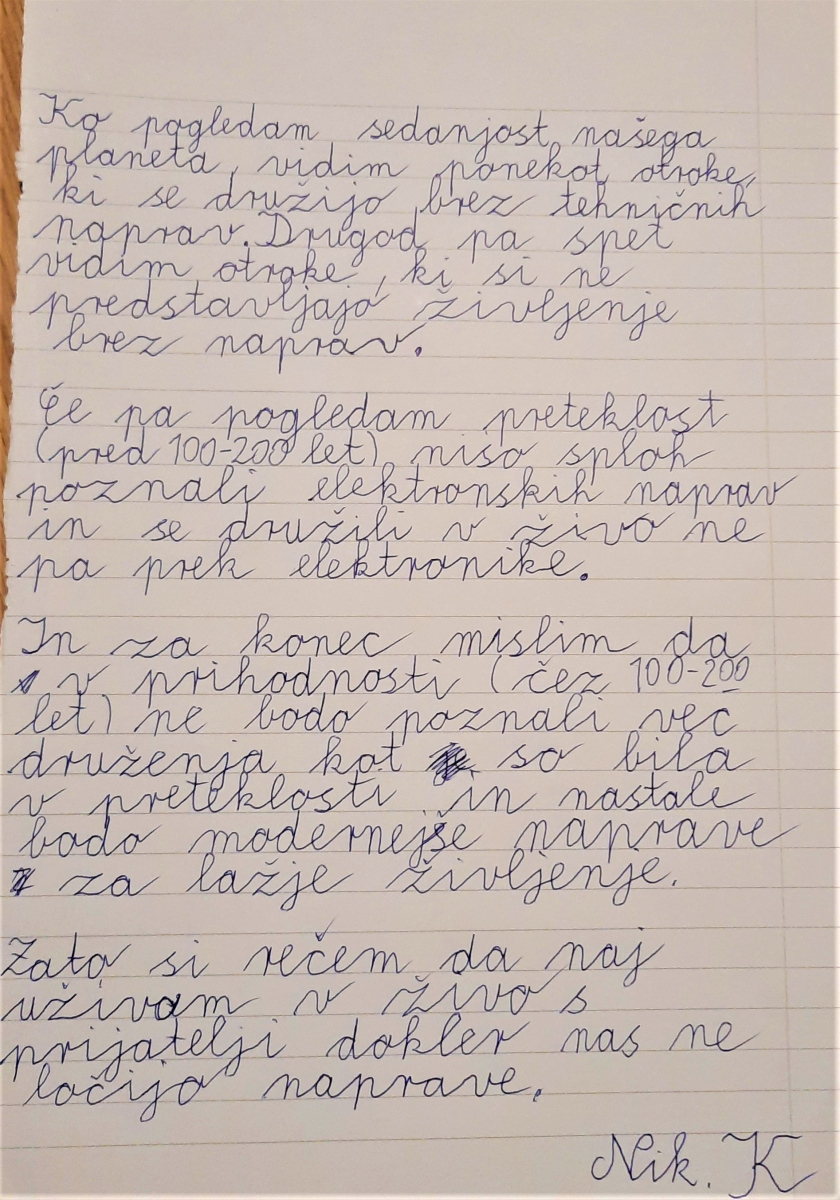 Ko pogledam sedanjost našega
planeta, vidim ponekot otroke,
ki se družijo brez tehničnih
naprav. Drugod pa spet
vidim otroke, ki si ne
predstavljajo življenje
brez naprav.
Če pa pogledam preteklost
(pred 100-200 let) niso sploh
poznali elektronskih naprav
in se družili v živo ne
pa prek elektronike.
In za konec mislim da
v prihodnosti (čez 100-200
let) ne bodo poznali več
druženja kot so bila
v preteklosti in nastale
bodo modernejše naprave
za lažje življenje.
Zato si rečem da naj
uživam v živo s
prijatelji dokler nas ne
ločijo naprave.
Nik. K